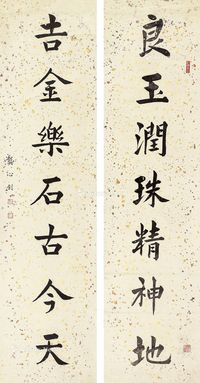 良玉潤珠精神地
吉金樂石古今天